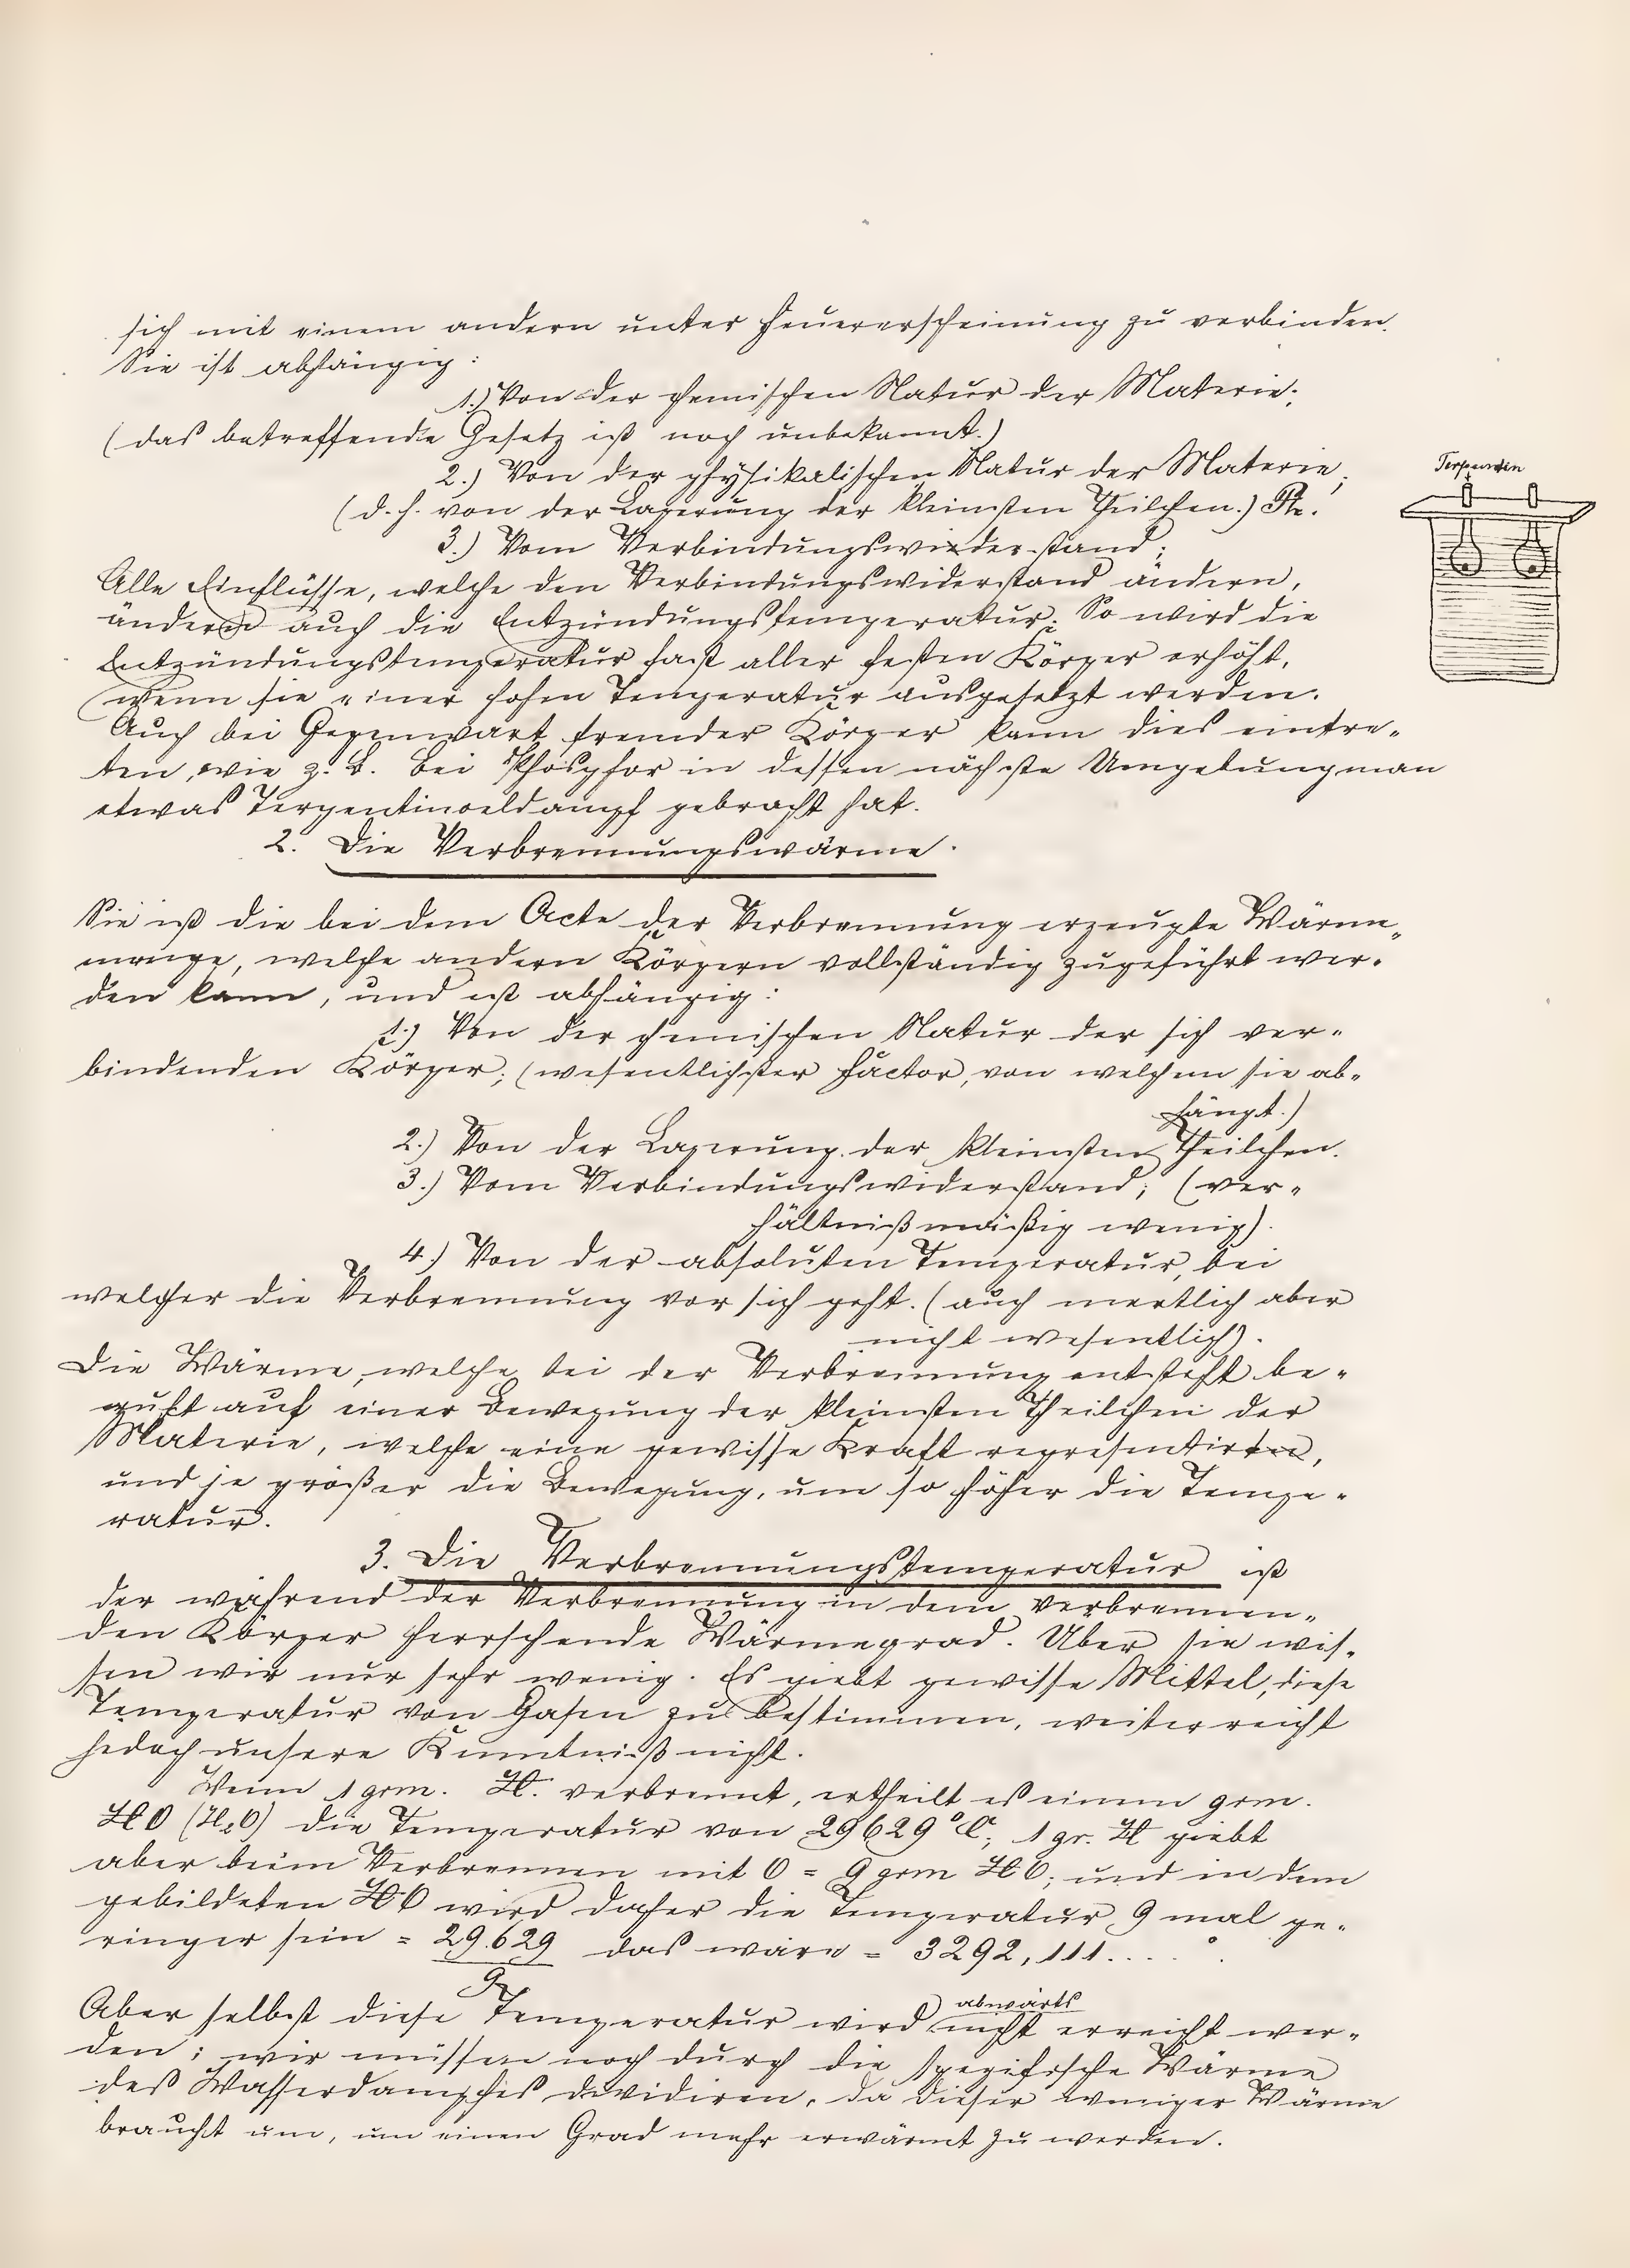 sich mit einem andern unter Feuererscheinung zu verbinden.
Sie ist abhängig:
1.) Von der chemischen Natur der Materie;
(das betreffende Gesetz ist noch unbekannt.)
2.) Von der physikalischen Natur der Materie;
(d. h. von der Lagerung der kleinsten Theilchen.)
3.) Vom Verbindungswiederstand;
Alle Einflüsse, welche den Verbindungswiderstand ändern,
ändern auch die Entzündungstemperatur. So wird die
Entzündungstemperatur fast aller festen Körper erhöht,
wenn sie einer hohen Temperatur ausgesetzt werden.
Auch bei Gegenwart fremder Körper kann dies eintre-
ten, wie z. B. bei Phosphor in dessen nächste Umgebung man
etwas Terpentinoeldampf gebracht hat.
Terpentin
2. Die Verbrennungswärme.
Sie ist die bei dem Acte der Verbrennung erzeugte Wärme-
menge, welche andern Körpern vollständig zugeführt wer-
den kann, und ist abhängig:
1.) Von der chemischen Natur der sich ver-
bindenden Körper; (wesentlichster Factor, von welchem sie ab-
hängt.)
2.) Von der Lagerung der kleinsten Theilchen.
3.) Vom Verbindungswiderstand; (ver-
hältnißmäßig wenig).
4.) Von der absoluten Temperatur, bei
welcher die Verbrennung vor sich geht. (auch merklich aber
nicht wesentlich).
Die Wärme, welche bei der Verbrennung entsteht be-
ruht auf einer Bewegung der kleinsten Theilchen der
Materie, welche eine gewisse Kraft representirten,
und je größer die Bewegung, um so höher die Tempe-
ratur.
3. Die Verbrennungstemperatur ist
der während der Verbrennung in dem verbrennen-
den Körper herrschende Wärmegrad. Über sie wis-
sen wir nur sehr wenig. Es giebt gewisse Mittel, diese
Temperatur von Gasen zu bestimmen, weiter reicht
jedoch unsere Kenntniß nicht.
Wenn 1 grm. H. verbrennt, ertheilt es einem grm.
HO (H2O) die Temperatur von 29629° C; 1 gr. H giebt
aber beim Verbrennen mit O = 9 grm HO; und in dem
gebildeten HO wird daher die Temperatur 9 mal ge-
ringer sein = 29.629 das wäre = 3292,111....°.
9
abwärts
Aber selbst diese Temperatur wird nicht erreicht wer-
den; wir müssen noch durch die spezifische Wärme
deß Wasserdampfes dividiren, da dieser weniger Wärme
braucht um, um einen Grad mehr erwärmt zu werden.